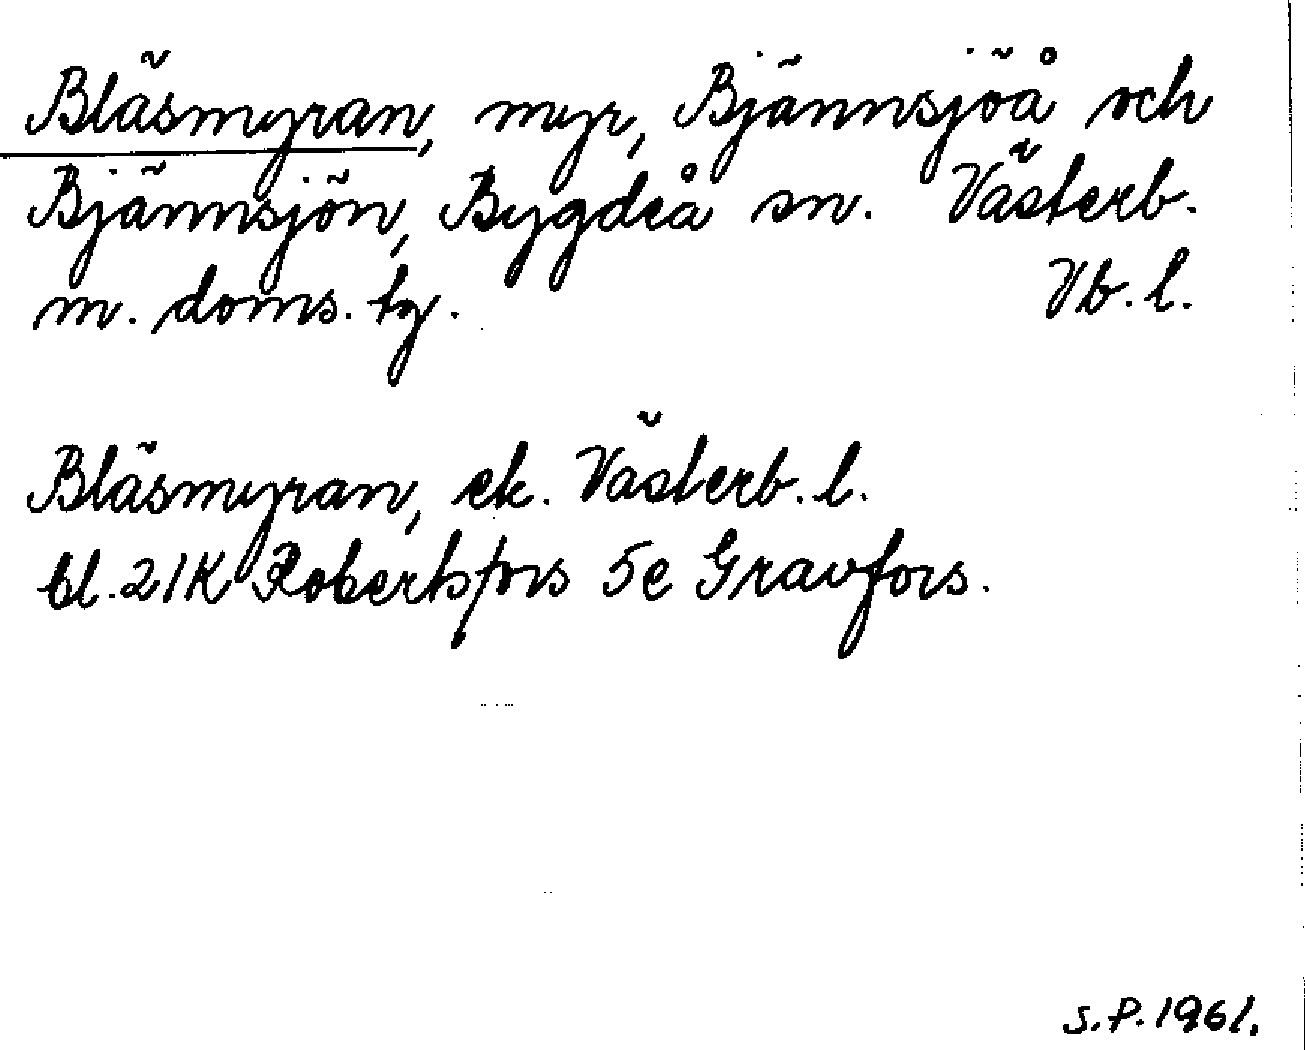 Bläsmyran, myr, Bjännsjöå och
Bjännsjön, Bygdeå sn. Västerb.
m. doms. tg. Vb. l.
Bläsmyran, ek. Västerb. l.
bl. 21K Robertsfors 5e Gravfors.
S.P. 1961.